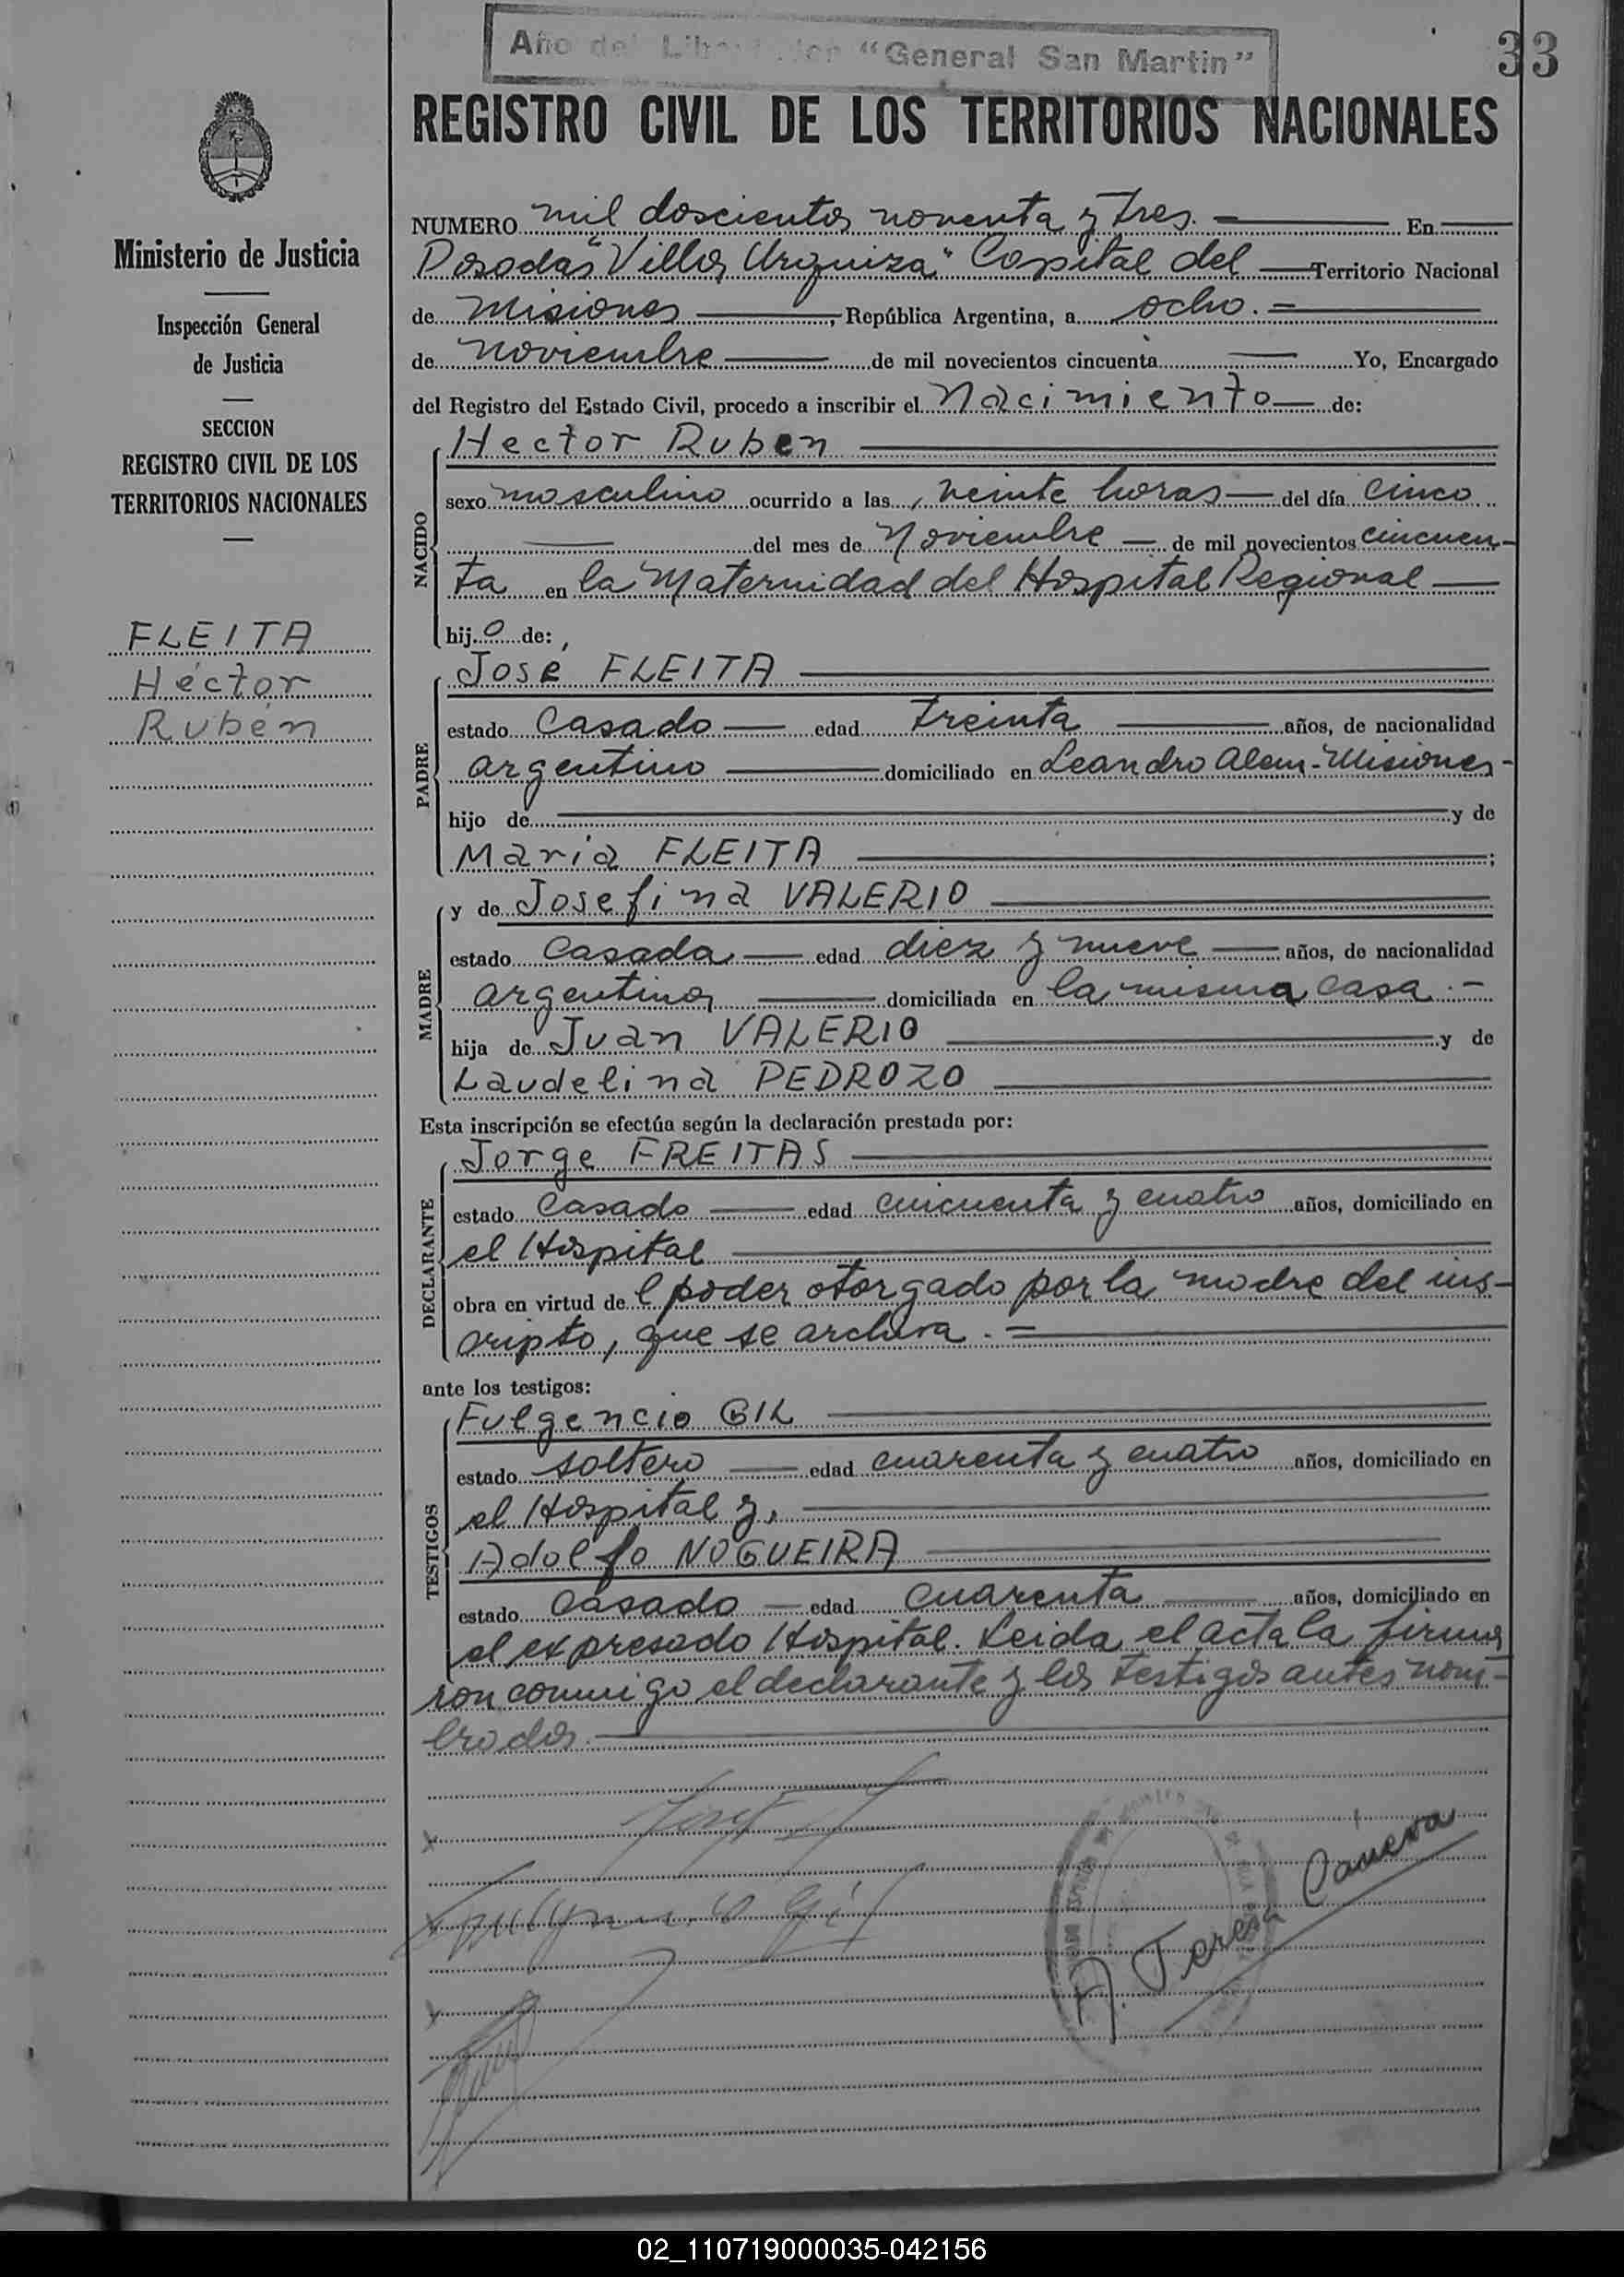 Año del Libertador "General San Martin"
33
REGISTRO CIVIL DE LOS TERRITORIOS NACIONALES
Ministerio de Justicia
Inspección General
de Justicia
SECCION
REGISTRO CIVIL DE LOS
TERRITORIOS NACIONALES
FLEITA
Héctor
Rubén
NUMERO mil doscientos noventa y tres. En
Posadas "Villa Urquiza" Capital del Territorio Nacional
de Misiones, República Argentina, a ocho.=
de noviembre de mil novecientos cincuenta Yo, Encargado
del Registro del Estado Civil, procedo a inscribir el Nacimiento de:
NACIDO
Hector Ruben
sexo masculino ocurrido a las veinte horas del día cinco
del mes de Noviembre de mil novecientos cincuen-
ta en la Maternidad del Hospital Regional
hijo de:
PADRE
José FLEITA
estado casado edad treinta años, de nacionalidad
argentino domiciliado en Leandro Alem-Misiones-
hijo de y de
María FLEITA;
MADRE
y de Josefina VALERIO
estado casada edad diez y nueve años, de nacionalidad
argentina domiciliada en la misma casa.-
hija de Juan VALERIO y de
Laudelina PEDROZO
Esta inscripción se efectúa según la declaración prestada por:
DECLARANTE
Jorge FREITAS
estado casado edad cincuenta y cuatro años, domiciliado en
el Hospital
obra en virtud del poder otorgado por la madre del ins-
cripto, que se archiva.=
ante los testigos:
TESTIGOS
Fulgencio GIL
estado soltero edad cuarenta y cuatro años, domiciliado en
el Hospital y,
Adolfo NOGUEIRA
estado casado edad cuarenta años, domiciliado en
el expresado Hospital. Leida el acta la firma
ron conmigo el declarante y los testigos antes nom-
brados.
A. Teresa Cánena
02_110719000035-042156